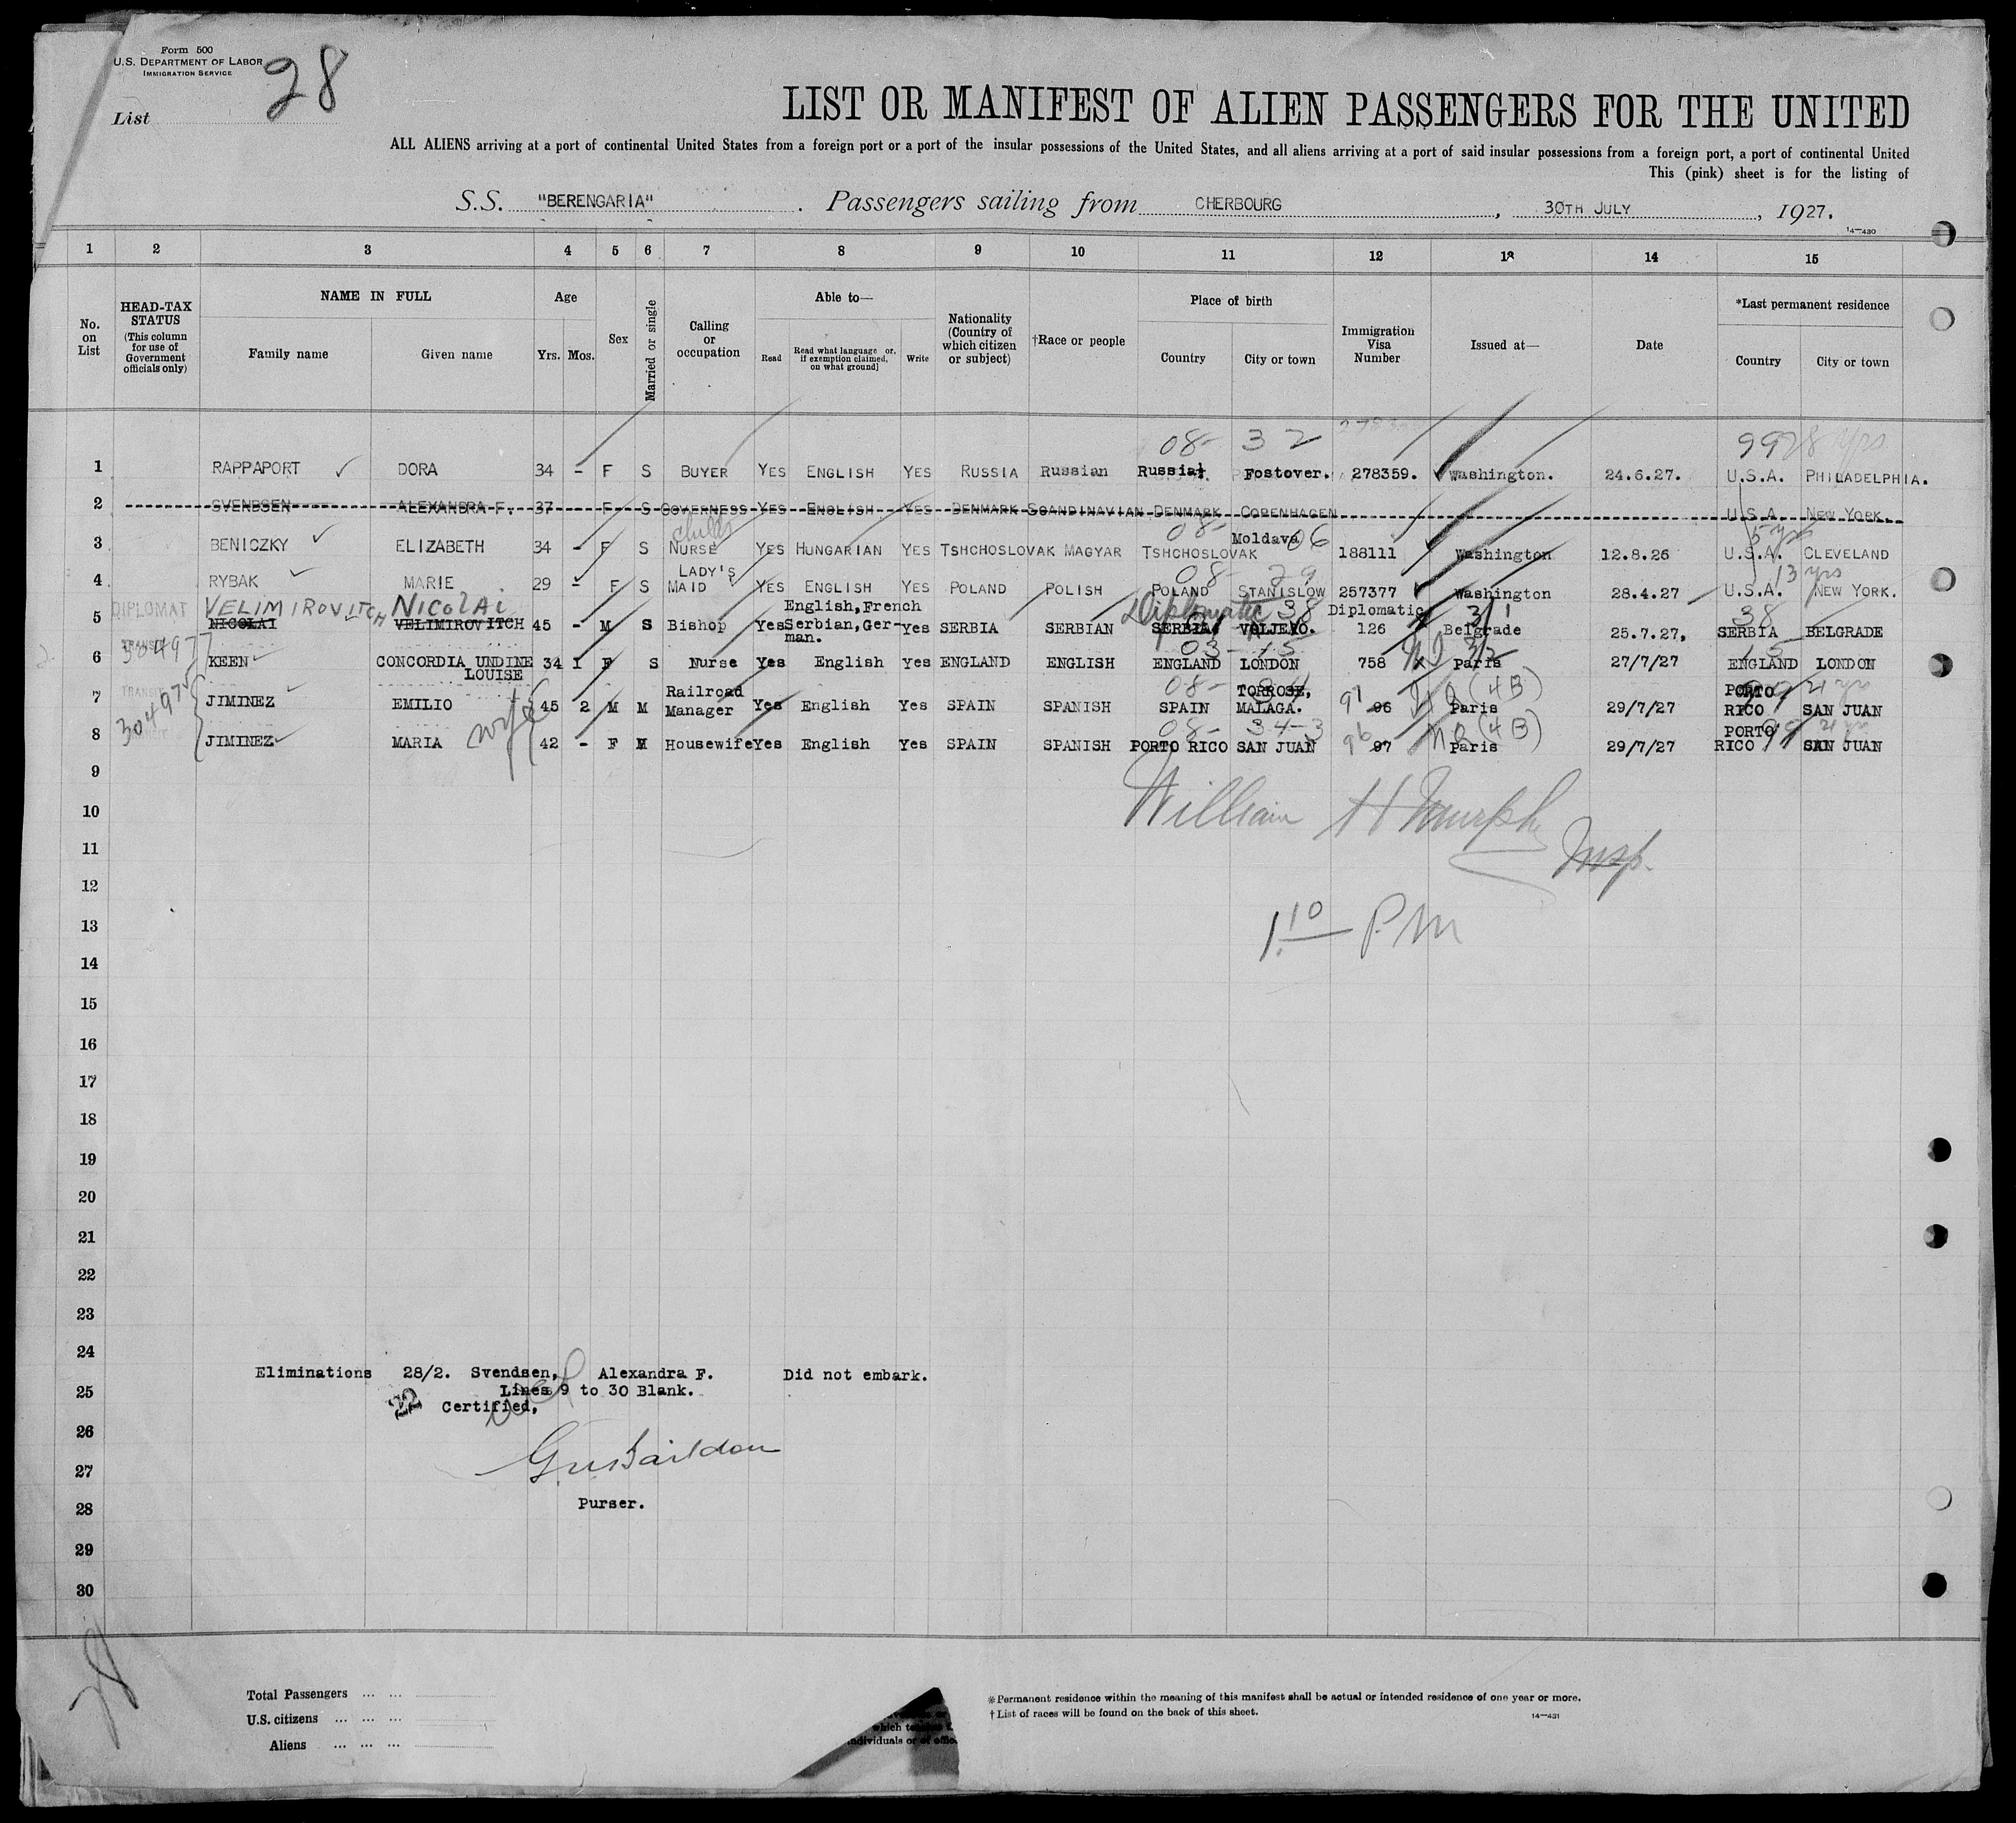 Form 500
U.S. DEPARTMENT OF LABOR
IMMIGRATION SERVICE
28
List
LIST OR MANIFEST OF ALIEN PASSENGERS FOR THE UNITED
ALL ALIENS arriving at a port of continental United States from a foreign port or a port of the insular possessions of the United States, and all aliens arriving at a port of said insular possessions from a foreign port, a port of continental United
This (pink) sheet is for the listing of
S.S. "BERENGARIA" . Passengers sailing from CHERBOURG , 30TH JULY , 1927.
14—430
1 2 3 4 5 6 7 8 9 10 11 12 13 14 15
No. on List
HEAD-TAX STATUS (This column for use of Government officials only)
NAME IN FULL Family name Given name
Age Yrs. Mos.
Sex
Married or single
Calling or occupation
Able to— Read Read what language or, if exemption claimed, on what ground] Write
Nationality (Country of which citizen or subject)
†Race or people
Place of birth Country City or town
Immigration Visa Number
Issued at—
Date
*Last permanent residence Country City or town
08- 32 992
1 RAPPAPORT DORA 34 - F S BUYER YES ENGLISH YES RUSSIA Russian Russia Fostover. 278359. Washington. 24.6.27. U.S.A. PHILADELPHIA.
2 SVENDSEN ALEXANDRA F. 37 F S GOVERNESS YES ENGLISH YES DENMARK SCANDINAVIAN DENMARK COPENHAGEN U.S.A. NEW YORK.
childs 08- 06 5 yrs
3 BENICZKY ELIZABETH 34 - F S NURSE YES HUNGARIAN YES TSHCHOSLOVAK MAGYAR TSHCHOSLOVAK Moldava 188111 Washington 12.8.26 U.S.A. CLEVELAND
08- 29 13 yrs
4 RYBAK MARIE 29 - F S LADY'S MAID YES ENGLISH YES POLAND POLISH POLAND STANISLOW 257377 Washington 28.4.27 U.S.A. NEW YORK.
DIPLOMAT VELIMIROVITCH NICOLAI Diplomatic 38 3/1 38
5 NICOLAI VELIMIROVITCH 45 - M S Bishop Yes English, French Serbian, German. Yes SERBIA SERBIAN SERBIA VALJEVO. Diplomatic 126 Belgrade 25.7.27, SERBIA BELGRADE
TRANSIT 304977 03-15 3/2 15
6 KEEN CONCORDIA UNDINE LOUISE 34 1 F S Nurse Yes English Yes ENGLAND ENGLISH ENGLAND LONDON 758 Paris 27/7/27 ENGLAND LONDON
304975 08- 34 97 (4B)
7 JIMINEZ EMILIO 45 2 M M Railroad Manager Yes English Yes SPAIN SPANISH SPAIN TORROSE, MALAGA. 96 Paris 29/7/27 PORTO RICO SAN JUAN
wife 08- 34-3 96 (4B) 99
8 JIMINEZ MARIA 42 - F M Housewife Yes English Yes SPAIN SPANISH PORTO RICO SAN JUAN 97 Paris 29/7/27 PORTO RICO SAN JUAN
9
William H Murphy
10
11
Insp.
12
13
1.10 P.M
14
15
16
17
18
19
20
21
22
23
24
Eliminations 28/2. Svendsen, Alexandra F. Did not embark.
25
Lines 9 to 30 Blank.
22 Certified,
26
27
28
Purser.
29
30
28
Total Passengers ... ...
U.S. citizens ... ... ...
Aliens ... ... ...
*Permanent residence within the meaning of this manifest shall be actual or intended residence of one year or more.
†List of races will be found on the back of this sheet.
14—431